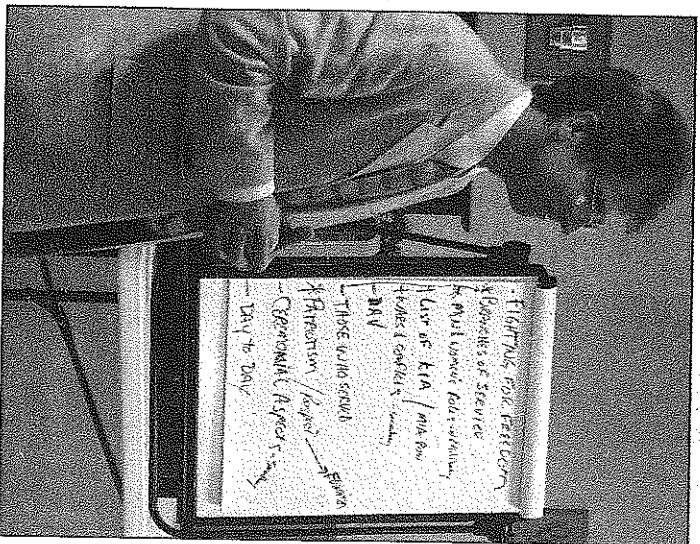 FIGHTING FOR FREEDOM
* BRANCHES OF SERVICE
* MIN/WOMENS ROLE IN MILITARY
* LIST OF KIA / MIA POW
* WARS & CONFLICTS
- DAV
- THOSE WHO SERVED
* PATRIOTISM / Respect →
- CEREMONIAL ASPECTS
- DAY to DAY